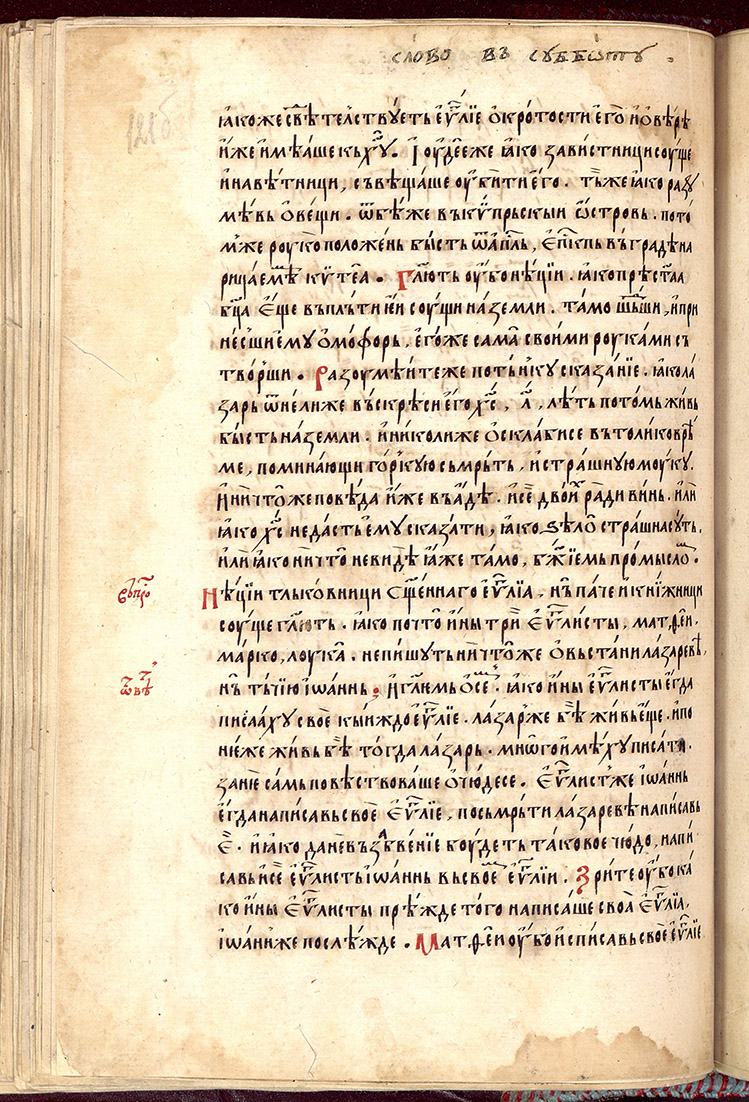 слово въ суббѡту
121б
ꙗкоже свⷣѣтелствꙋеть еѵⷢлїе ѻкротости его и ѻвѣрѣ
иже имѣаше кьхⷭꙋ. Іоудⷷееже ꙗко завистници соуще
инавѣтници, съвѣщаше оубити его. тѣмже ꙗко разꙋ
мѣвь ѻвещи. ѿбѣже вькѵпрьскыи ѻстровь. пото
мже роукоположень бысть ѿапⷭль, епⷭкпь въградѣна
рицаемѣмь кѵтеа. Глⷮють оубо нѣцїи. ꙗкопрѣстаⷶа
бцⷣа еще въплъти ен соущи наземли. тамо шⷣьши, ипри
несши ему ѻмофорь, егоже сама своими роуками съ
творши. Разоумѣитеже потънкꙋ сказанїе. ꙗкола
зарь ѿнелиже въскрѣси его хⷭ, л҃, лѣть потомь живь
бысть наземли. иниколиже ѻсклабисе втоликоврѣ
ме, поминающи горкꙋю сьмрьть, истрашнꙋюмоукꙋ.
Иничтоже повѣда иже въадѣ. исе двоихь ради винь. или
ꙗко хⷭ недасть ему сказати, ꙗко ѕѣло страшна сꙋть.
или ꙗко ничто невидѣ ꙗже тамо, бжⷭїемь промысломь.
въпроⷭ
Нѣцїи тлъковници сщⷭеннаго еѵⷢлїа, нъ паче и книжници
соуще глⷮють. ꙗко почто ины три еѵⷢлисты, матѳеи.
марко, лоука. непишꙋть ничтоже ѻвъстани лазаревѣ,
ѿвѣⷮ
нъ тъчїю іѡаннь. Иглⷮемь ѻсемь. ꙗко ины еѵⷢлисты егда
писаахꙋ свое кыиждо еѵⷢлїе. лазарже бѣ живьеще. ипо
неже живь бѣ тогда лазарь. мнѡго имѣхꙋ писати.
зане самь повѣствоваше ѻчюдесе. еѵⷢлистже іѡаннь
егда написавь свое еѵⷢлїе, посьмрьти лазаревѣ написавь
е. иꙗко даневъзабвенїе боудеть таковое чюдо, напи
савь исе еѵⷢлисть іѡаннь въсвоемь еѵⷢлїи. Зрите оубо ка
ко ины еѵⷢлисты прѣжде того написаше своа еѵⷢлїа,
іѡаниже послѣжде. Матѳеи оубо исписавь свое еѵⷢлїе